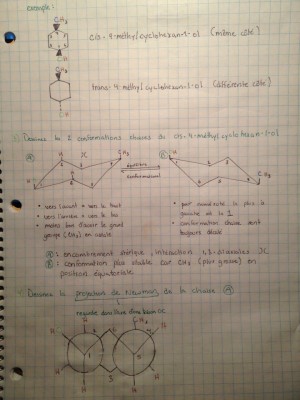 exemple :
CH3
OH
cis-4-méthylcyclohexan-1-ol (même côté)
CH3
OH
trans-4-méthylcyclohexan-1-ol (différente côté)
Dessinez la 2 conformations chaises du cis-4-méthylcyclohexan-1-ol
A
B
H
CH3
équilibre
conformationnel
CH3
H
• vers l'avant = vers le haut
• vers l'arrière = vers le bas
• moins bon d'avoir le grand
groupe (CH3) en axiale
• par convention, la plus à
gauche est la 1
• conformation chaise sont
toujours décalé
A : encombrement stérique, interaction 1,3-diaxiales
B : conformation plus stable car CH3 (plus grosse) en
position équatoriale
Dessinez la projection de Newman de la chaise A
regarder dans l'axe d'une liaison C-C
H
CH3
H
H
H
H
1
3